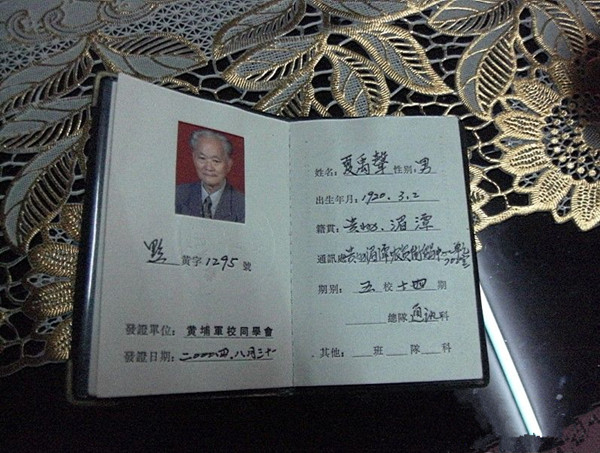 黔 黄字1295號
發證單位：黄埔軍校同學會
發證日期：二000四.八月三十
姓名：夏禹聲 性别：男
出生年月：1920.3.2
籍貫：贵州、湄潭
通訊處：贵州湄潭
期别：五 校 十四 期
總隊 通讯 科
其他：班 隊 科